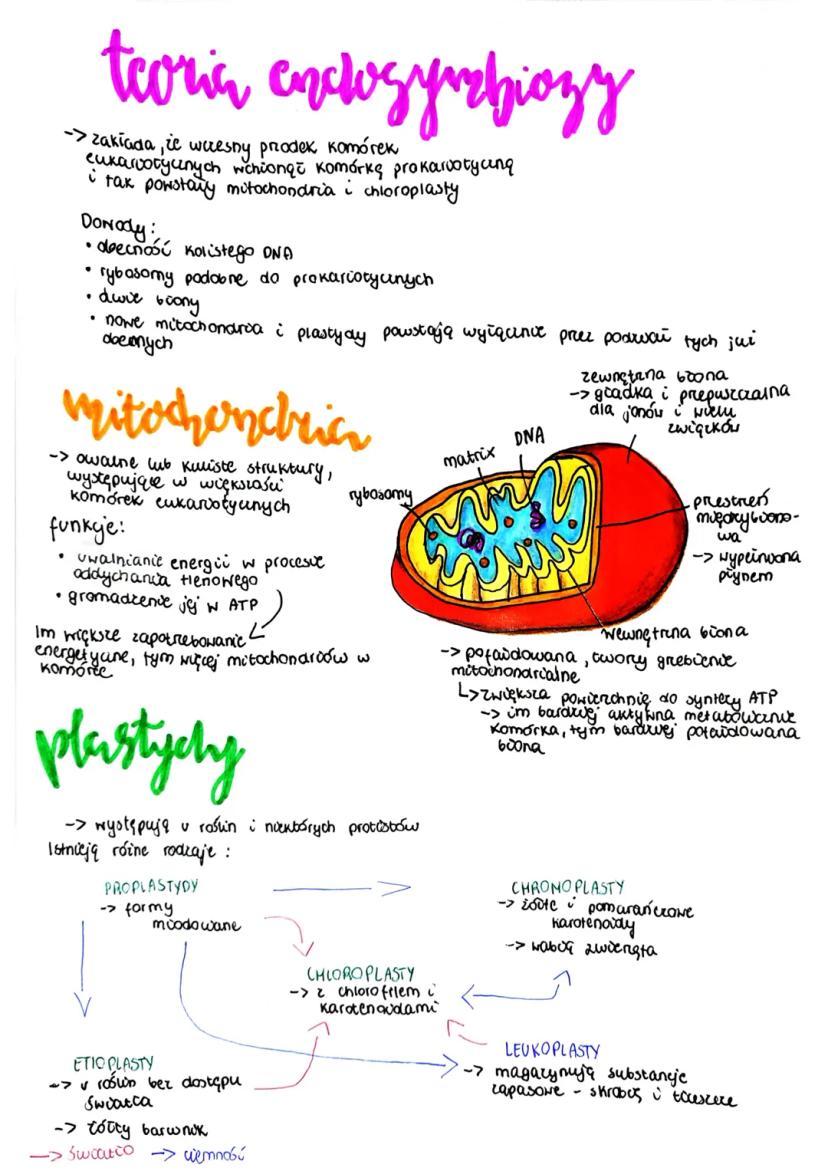 teoria endosymbiozy
-> zakłada, że wczesny przodek komórek
eukariotycznych wchłonął komórkę prokariotyczną
i tak powstały mitochondria i chloroplasty
Dowody:
• obecność kolistego DNA
• rybosomy podobne do prokariotycznych
• dwie błony
• nowe mitochondria i plastydy powstają wyłącznie przez podział tych już
obecnych
mitochondria
-> owalne lub kuliste struktury,
występujące w większości
komórek eukariotycznych
funkcje:
• uwalnianie energii w procesie
oddychania tlenowego
• gromadzenie jej w ATP
Im większe zapotrzebowanie
energetyczne, tym więcej mitochondriów w
komórce
zewnętrzna błona
-> gładka i przepuszczalna
dla jonów i wielu
związków
DNA
matrix
rybosomy
przestrzeń
międzybłono-
wa
-> wypełniona
płynem
wewnętrzna błona
-> pofałdowana, tworzy grzebienie
mitochondrialne
↳ zwiększa powierzchnię do syntezy ATP
-> im bardziej aktywna metabolicznie
komórka, tym bardziej pofałdowana
błona
plastydy
-> występują u roślin i niektórych protistów
Istnieją różne rodzaje:
PROPLASTYDY
-> formy
młodowane
CHRONOPLASTY
-> żółte i pomarańczowe
karotenoidy
-> wabią zwierzęta
CHLOROPLASTY
-> z chlorofilem i
karotenoidami
LEUKOPLASTY
-> magazynują substancje
zapasowe - skrobię i tłuszcze
ETIOPLASTY
-> u roślin bez dostępu
światła
-> żółty barwnik
-> światło -> ciemność